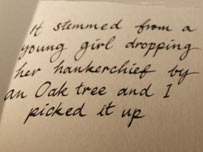 It stemmed from a
young girl dropping
her hankerchief by
an Oak tree and I
picked it up